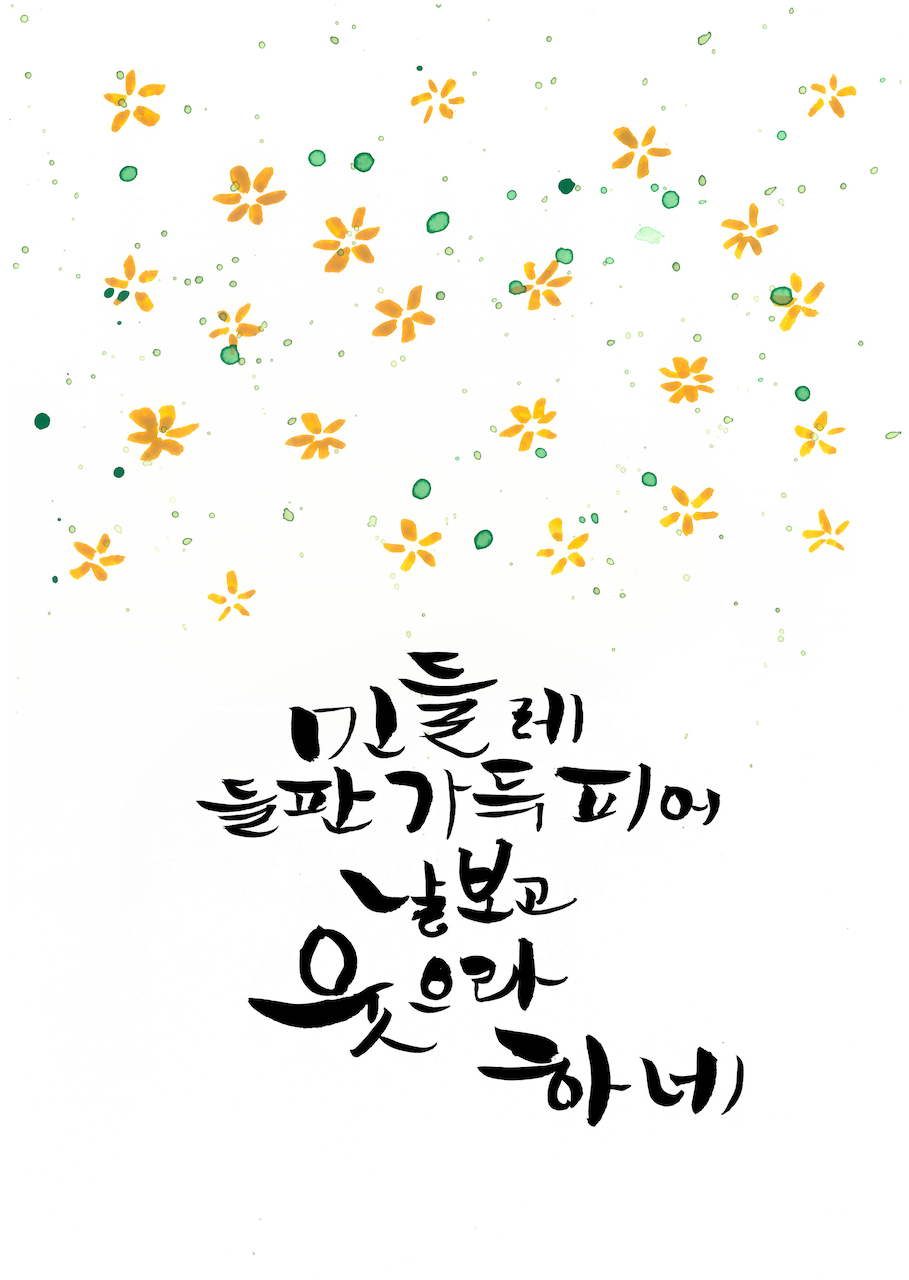 민들레
들판 가득 피어
날 보고
웃으라
하네